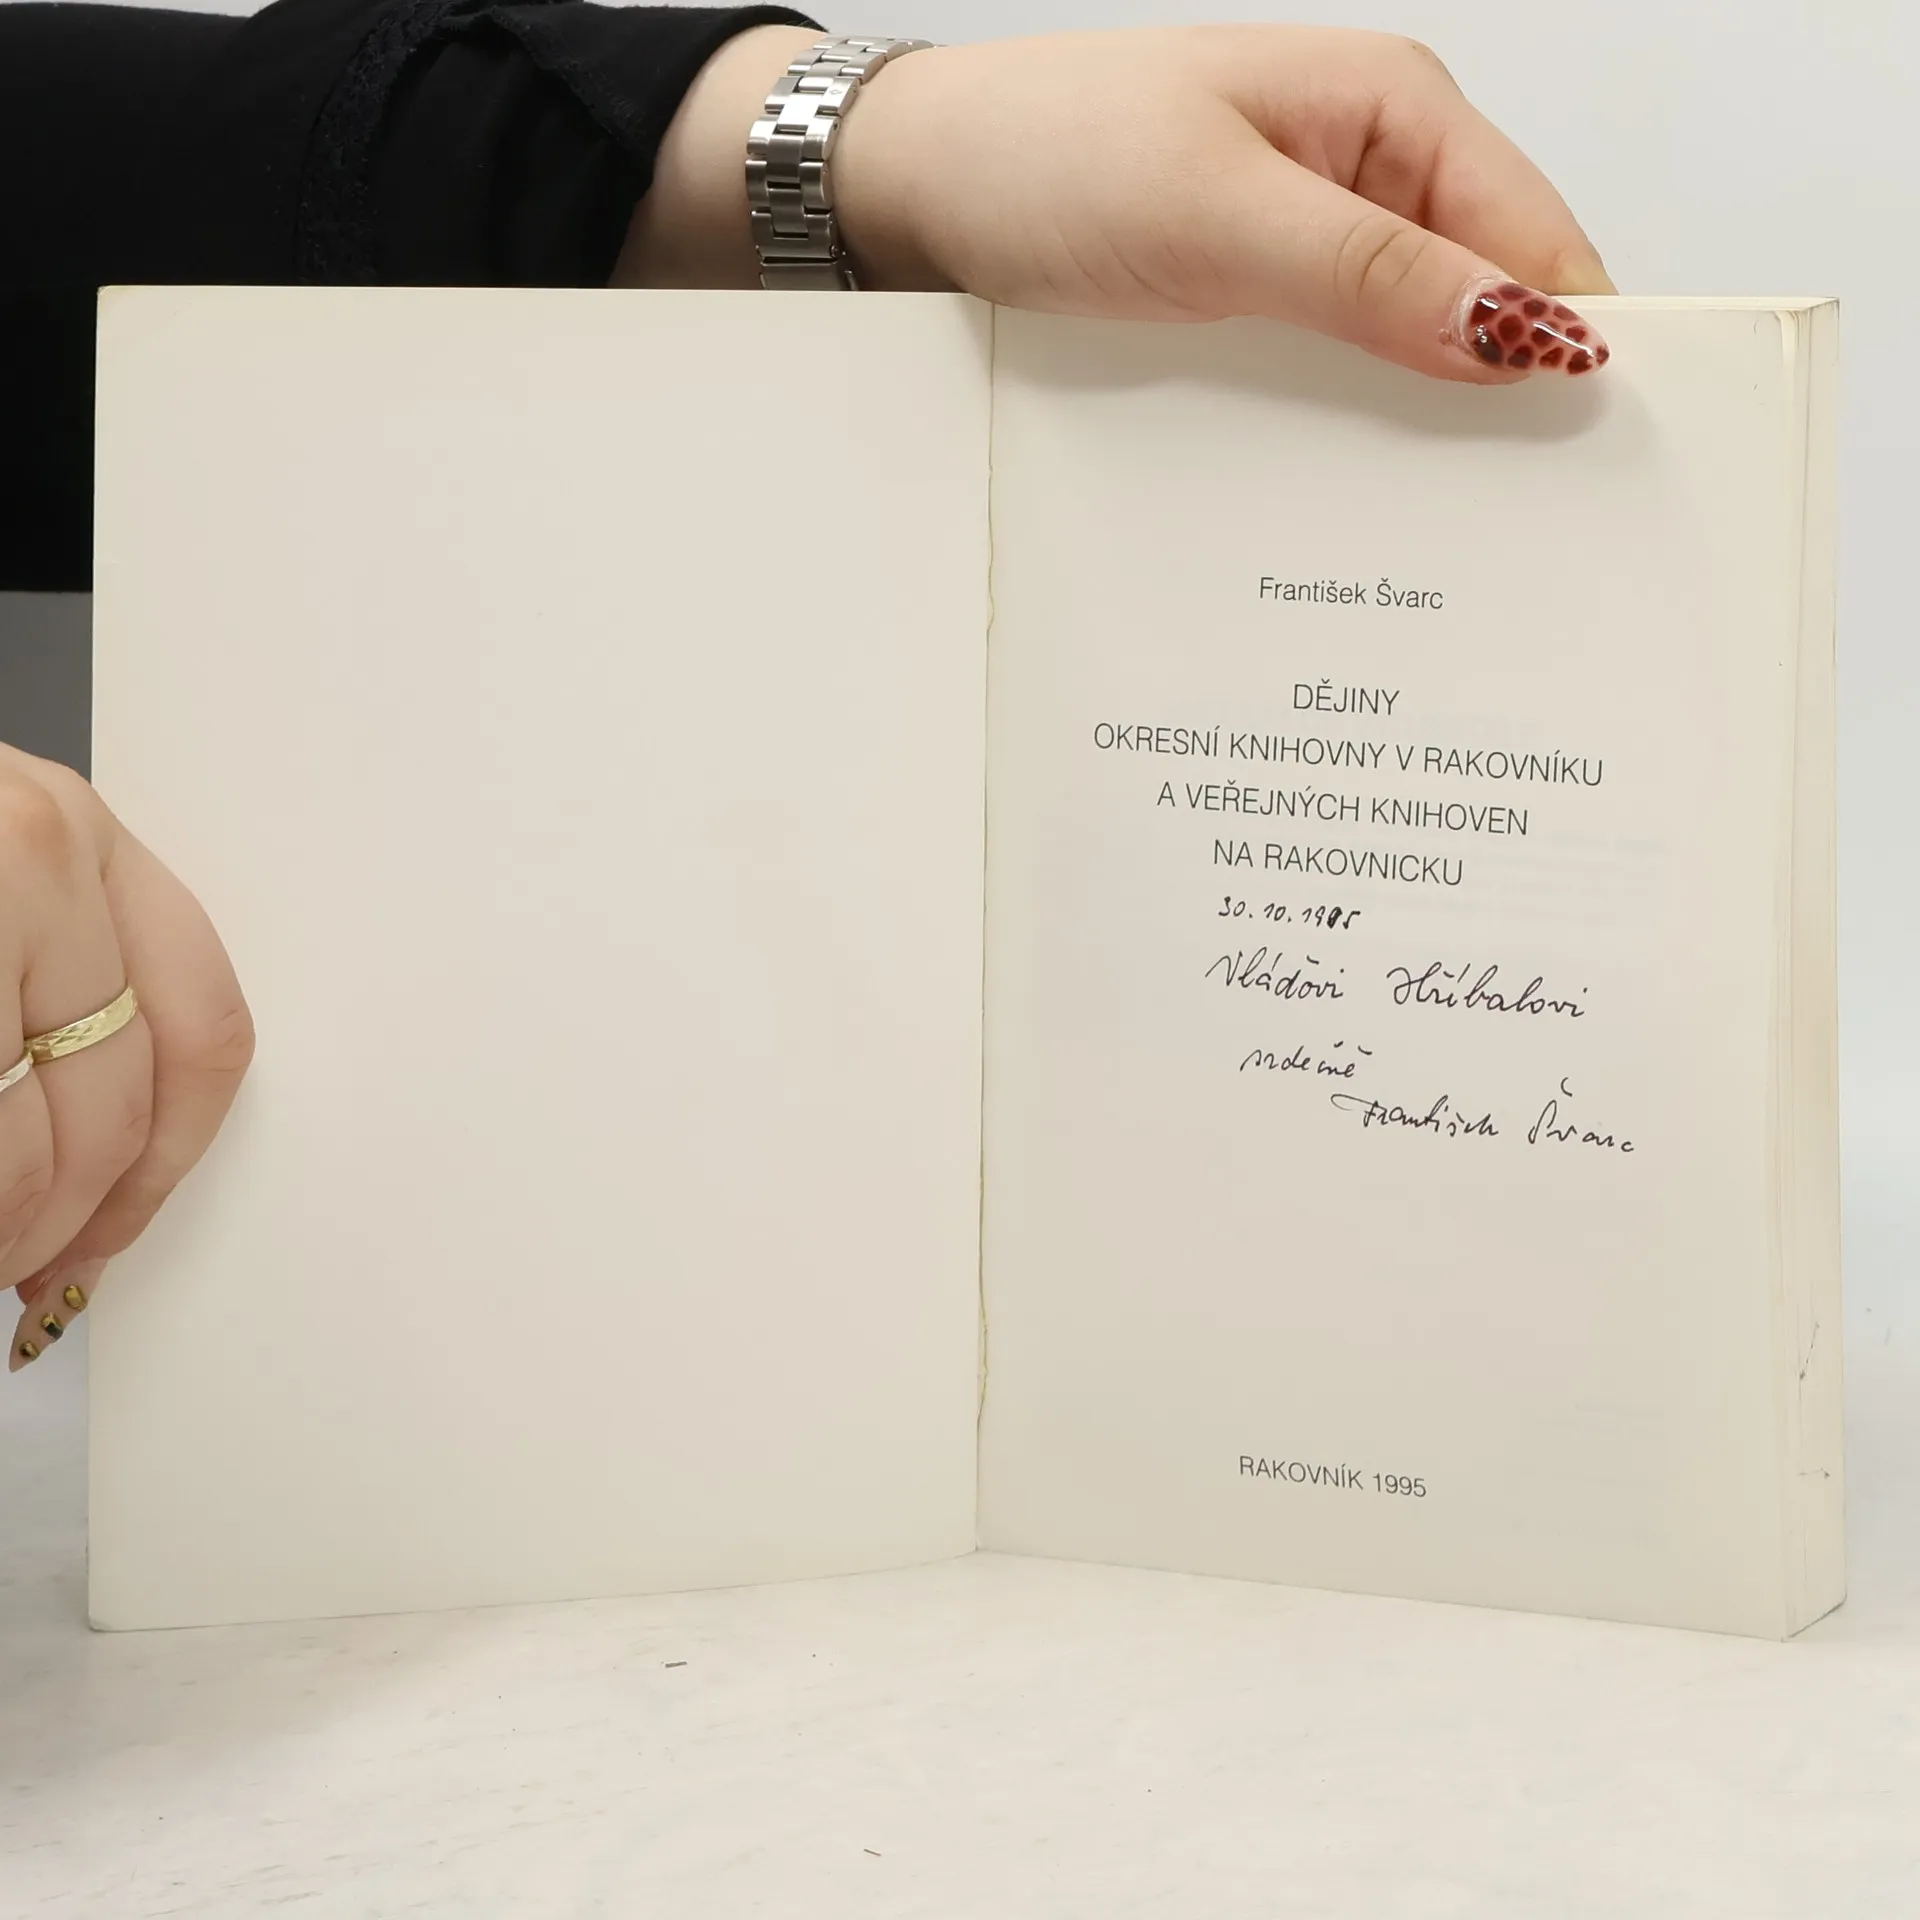 František Švarc
DĚJINY
OKRESNÍ KNIHOVNY V RAKOVNÍKU
A VEŘEJNÝCH KNIHOVEN
NA RAKOVNICKU
30. 10. 1995
Vláďovi Hříbalovi
srdečně
František Švarc
RAKOVNÍK 1995